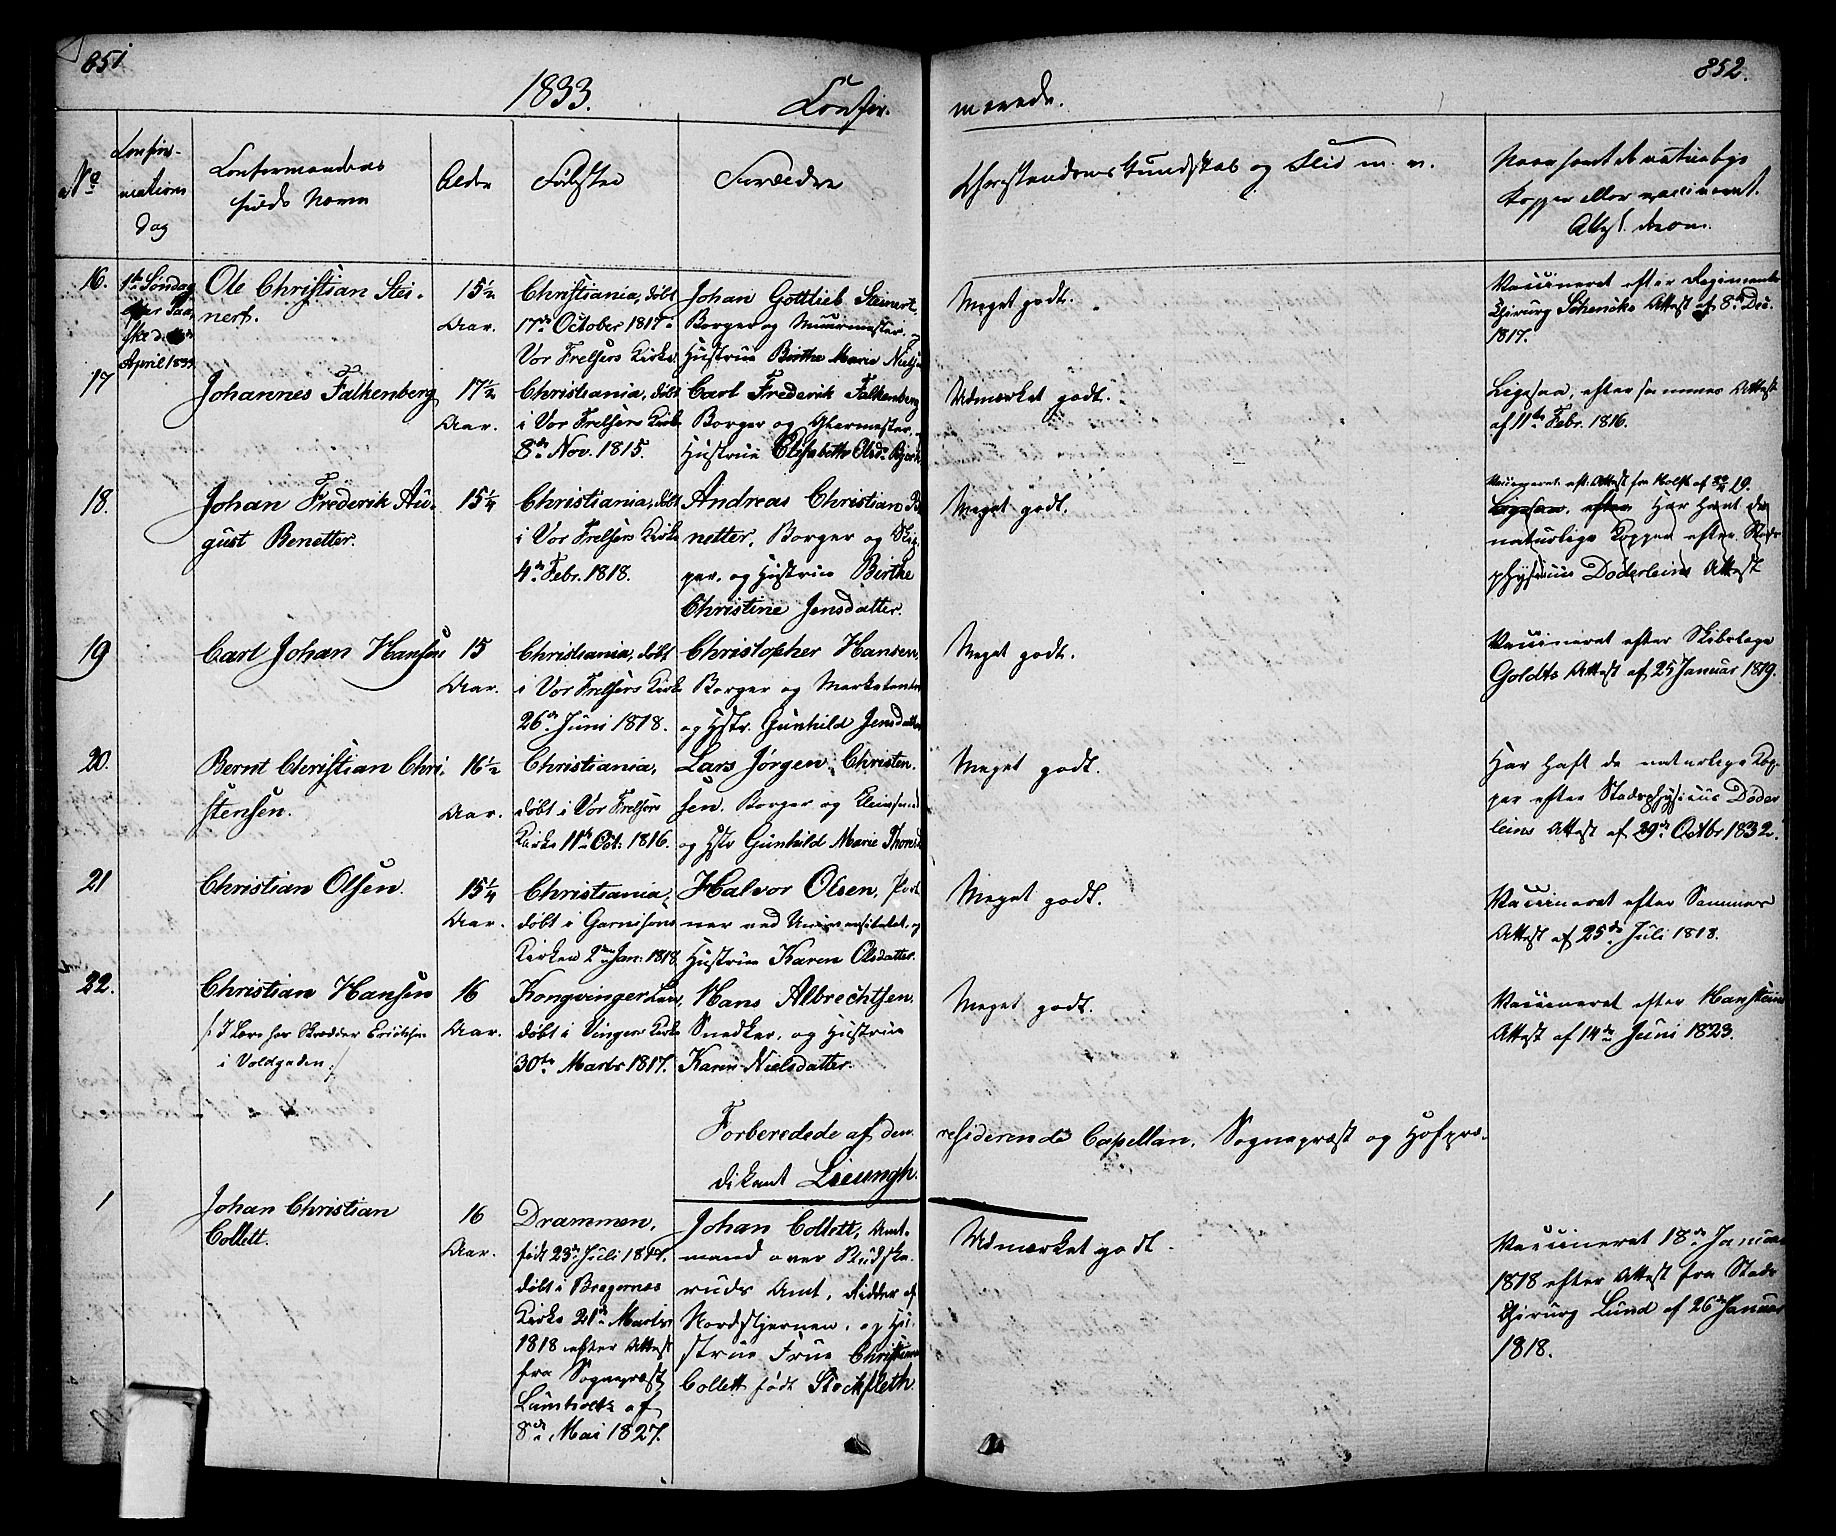 851
852.
1833.
Confir-
merede.
No
Confir-
mations
Dag
Confirmandens
fulde Navn
Alder
Fødested
Forældre
Christendoms Kundskab og Flid m. v.
Naar havt de naturlige
Kopper eller vaccineret.
Attest derom.
16.
1ste Søndag
April 1833
Ole Christian Stei-
nert.
15½
Aar.
Christiania, døbt
17de October 1817 i
Vor Frelsers Kirke.
Johan Gottlieb Steinert,
Borger og Muurmester, og
Hustrue Birthe Marie
Meget godt.
Vaccineret efter Regiments
Chirurg Schencks Attest af 8de Dec.
1817.
17
Johannes Falkenberg
17½
Aar.
Christiania, døbt
i Vor Frelsers Kirke
8de Nov. 1815.
Carl Frederik Falkenberg
Borger og
Hustrue Elisabeth Olsdr
Udmærket godt.
Ligesaa, efter sammes Attest
af 11te Febr. 1816.
18.
Johan Frederik Au-
gust Benetter.
15¼
Christiania, døbt
i Vor Frelsers Kirke
4de Febr. 1818.
Andreas Christian Be
netter, Borger og Skip-
per, og Hustrue Birthe
Christine Jensdatter.
Meget godt.
Vaccineret eft. Attest fra Holst af
Ligesaa, efter Har havt de
naturlige Kopper efter Stads-
physicus Døderleins Attest
19
Carl Johan Hansen
15
Aar.
Christiania, døbt
i Vor Frelsers Kirke
26de Juni 1818.
Christopher Hansen,
Borger og Marketenter
og Hstr. Gunhild Jensdatter
Meget godt.
Vaccineret efter Skibslæge
Goldts Attest af 25 Januar 1819.
20.
Bernt Christian Chri-
stensen.
16½
Aar.
Christiania,
døbt i Vor Frelsers
Kirke 11te Oct. 1816.
Lars Jørgen Christen-
sen, Borger og
og Hstr Gunhild Marie
Meget godt.
Har haft de naturlige Kop-
per efter Stadsphysicus Døder
leins Attest af 29de Octbr 1832.
21
Christian Olsen.
15¼
Aar.
Christiania,
døbt i Garnisons
Kirken 2den Jan. 1818.
Halvor Olsen, Port-
ner ved Universitetet, og
Hustrue Karen Olsdatter.
Meget godt.
Vaccineret efter Sammes
Attest af 25de Juli 1818.
22.
Christian Hansen
/: I Lære hos Skrædder Erichsen
i Voldgaden :/
16
Aar.
Kongvinger
døbt i Vinger Kirke
30te Marts 1817.
Hans Albrechtsen
Snedker, og Hustrue
Karen Nielsdatter.
Meget godt.
Vaccineret efter Hansteens
Attest af 14de Juni 1823.
Forberedede af den
residerende Capellan, Sognepræst og Hofpræ-
dikant Lieungh.
1
Johan Christian
Collett.
16
Aar.
Drammen,
født 23de Juli 1817.
døbt i Bragernes
Kirke 21de Marts
1818 efter Attest
fra Sognepræst
Lumholtz af
8de Mai 1827.
Johan Collett, Amt-
mand over Budske-
ruds Amt, Ridder af
Nordstjernen, og Hu-
strue Frue Christiane
Collett født Stockfleth.
Udmærket godt.
Vaccineret 18de Januar
1818 efter Attest fra Stads
Chirurg Lund af 26de Januar
1818.